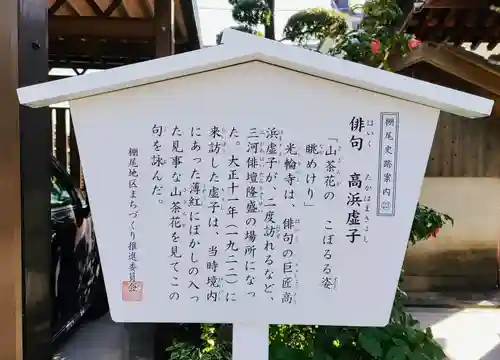 棚尾史跡案内
俳句 高浜虚子
はいく たかはまきょし
「山茶花の こぼるる姿
眺めけり」
光輪寺は、俳句の巨匠高
浜虚子が、二度訪れるなど、
三河俳壇隆盛の場所になっ
た。大正十一年(一九二二)に
来訪した虚子は、当時境内
にあった薄紅にぼかしの入っ
た見事な山茶花を見てこの
句を詠んだ。
棚尾地区まちづくり推進委員会